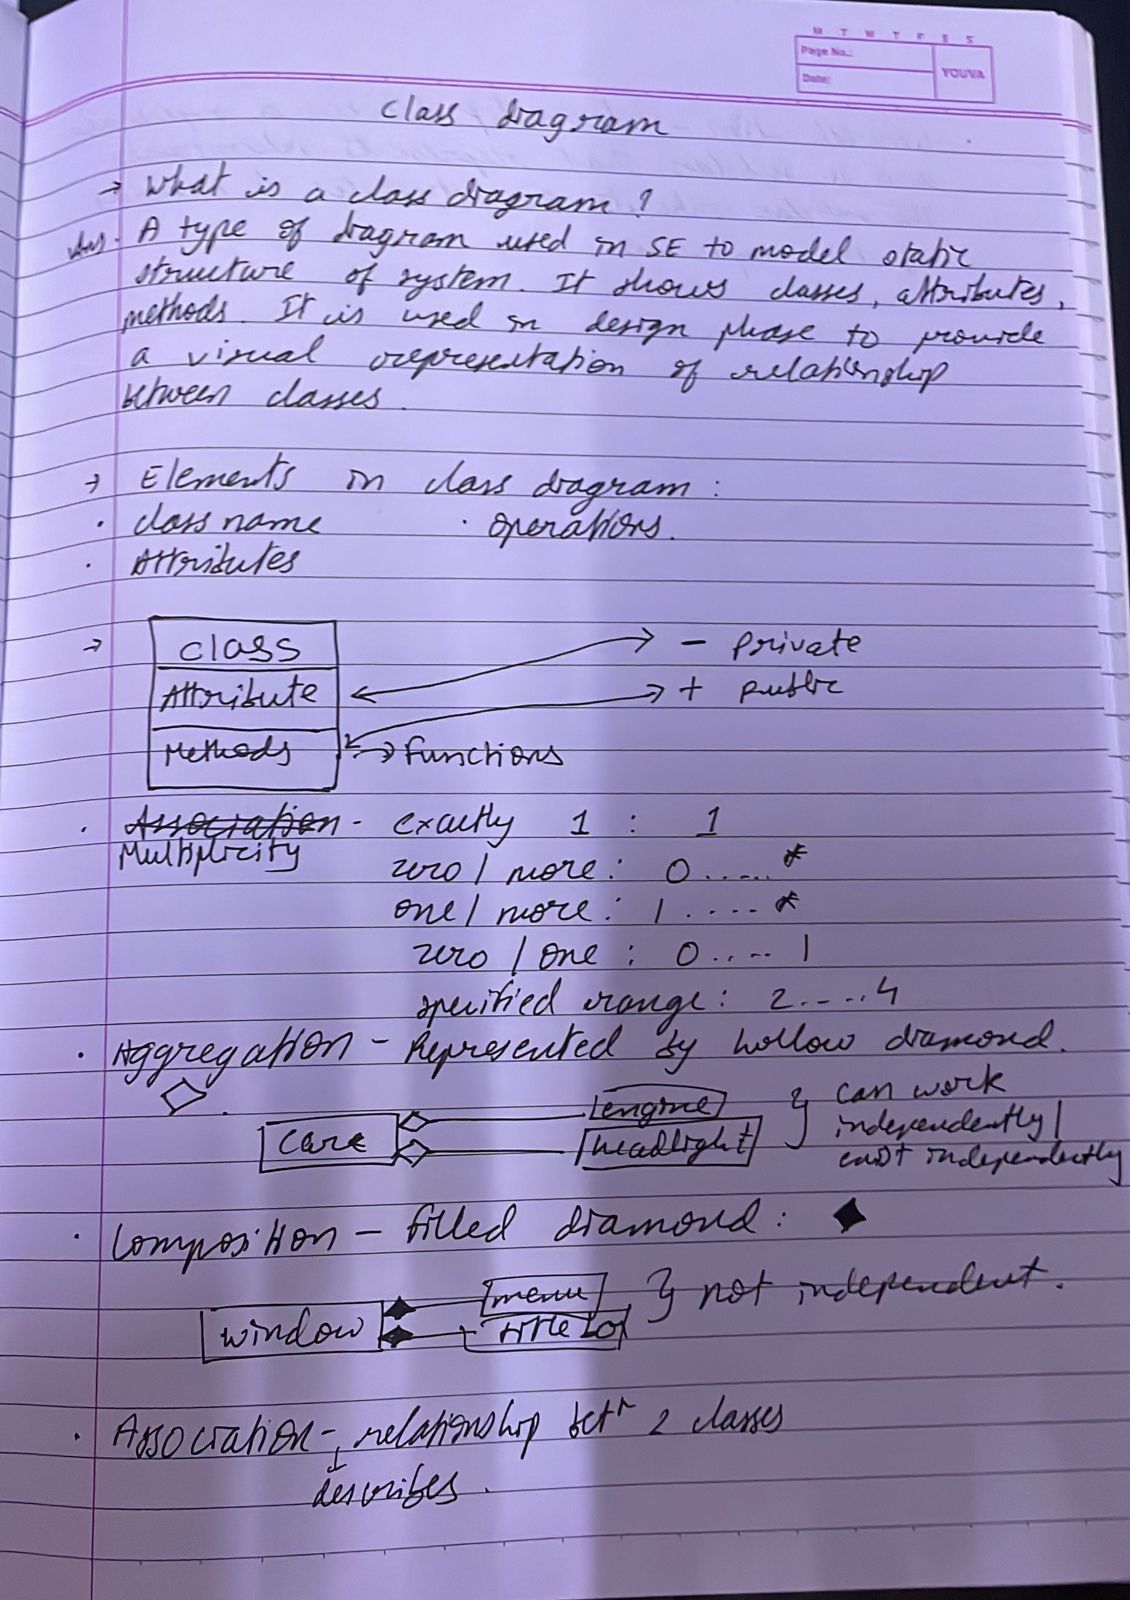 M T W T F S S
Page No.:
Date:
YOUVA
Class diagram
→ What is a class diagram?
Ans. A type of diagram used in SE to model static
structure of system. It shows classes, attributes,
methods. It is used in design phase to provide
a visual representation of relationship
between classes.
→ Elements in class diagram :
· class name · operations.
· Attributes
→ Class
Attribute
Methods
→ Functions
- private
+ public
· Association - exactly 1 : 1
Multiplicity
zero / more : 0.....*
one / more : 1.....*
zero / one : 0.... 1
specified range : 2....4
· Aggregation - Represented by hollow diamond.
care
engine
headlight
can work
independently /
independently
· Composition - filled diamond :
window
menu
title
not independent.
· Association - relationship betn 2 classes
describes.